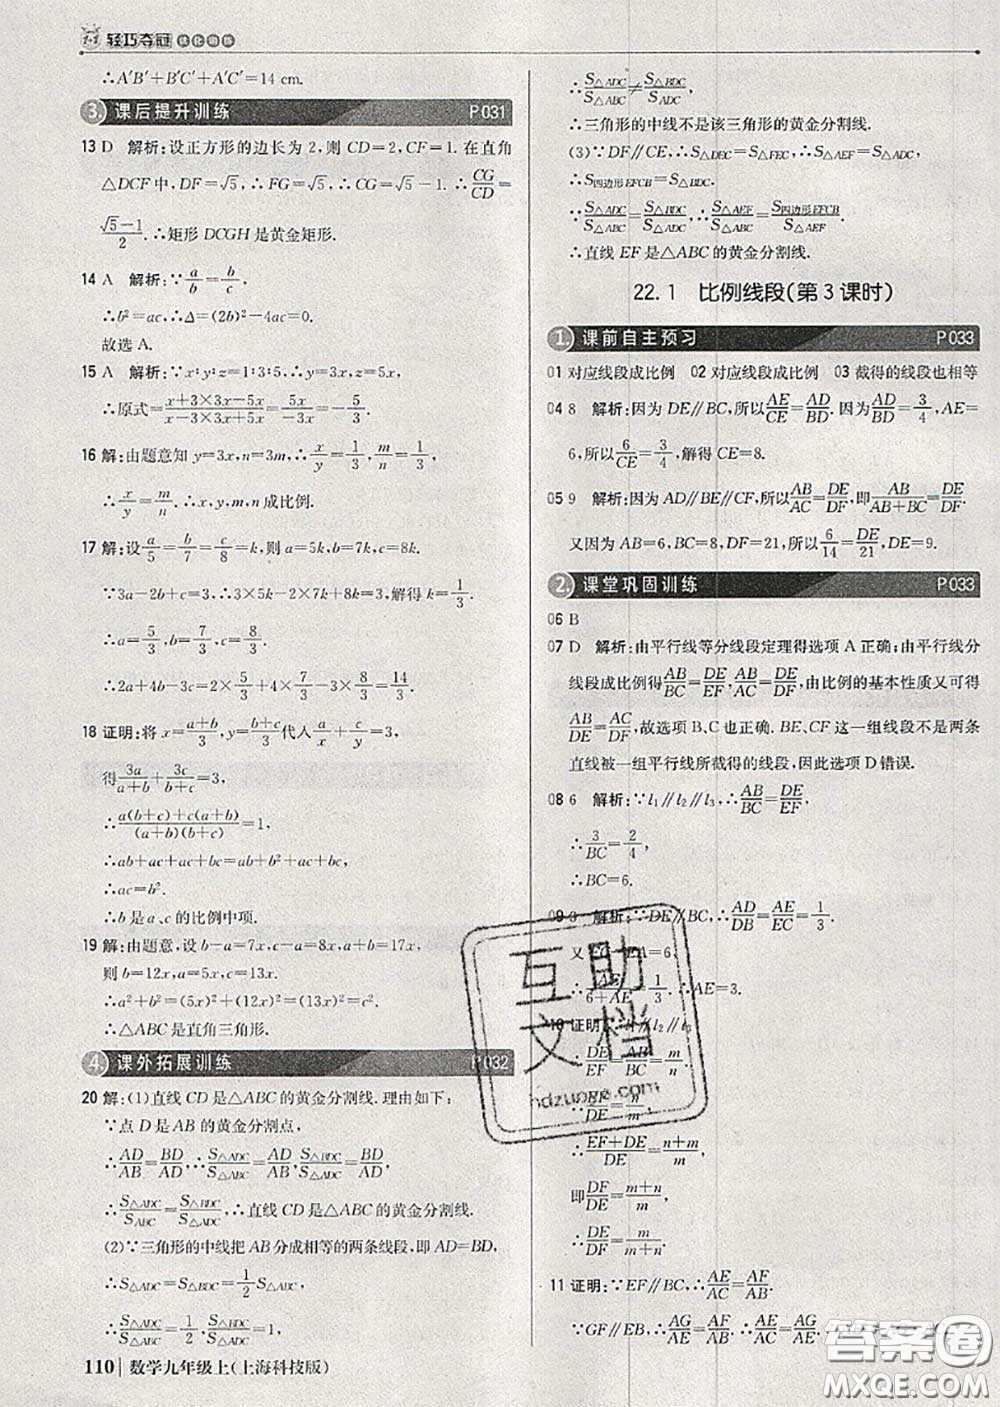 轻巧夺冠 优化训练
∴A′B′+B′C′+A′C′=14 cm.
3. 课后提升训练 P031
13 D 解析:设正方形的边长为 2,则 CD=2,CF=1. 在直角
△DCF 中,DF=√5,∴FG=√5,∴CG=√5-1.∴CG/CD=
(√5-1)/2.∴矩形 DCGH 是黄金矩形.
14 A 解析:∵a/b=b/c,
∴b²=ac,∴Δ=(2b)²-4ac=0.
故选 A.
15 A 解析:∵x∶y∶z=1∶3∶5,∴y=3x,z=5x,
∴原式=(x+3×3x-5x)/(x-3×3x+5x)=5x/(-3x)=-5/3.
16 解:由题意知 y=3x,n=3m,∴x/y=1/3,m/n=1/3,
∴x/y=m/n.∴x,y,m,n 成比例.
17 解:设a/5=b/7=c/8=k,则 a=5k,b=7k,c=8k.
∵3a-2b+c=3,∴3×5k-2×7k+8k=3,解得 k=1/3.
∴a=5/3,b=7/3,c=8/3.
∴2a+4b-3c=2×5/3+4×7/3-3×8/3=14/3.
18 证明:将 x=(a+b)/3,y=(b+c)/3代人a/x+c/y=3,
得3a/(a+b)+3c/(b+c)=3,
∴(a(b+c)+c(a+b))/((a+b)(b+c))=1,
∴ab+ac+ac+bc=ab+b²+ac+bc,
∴ac=b².
∴b 是 a、c 的比例中项.
19 解:由题意,设 b-a=7x,c-a=8x,a+b=17x,
则 b=12x,a=5x,c=13x.
∴a²+b²=(5x)²+(12x)²=(13x)²=c².
∴△ABC 是直角三角形.
4. 课外拓展训练 P032
20 解:(1)直线 CD 是△ABC 的黄金分割线. 理由如下:
∵点 D 是 AB 的黄金分割点,
∴AD/AB=BD/AD.∵S△ADC/S△ABC=AD/AB,S△BDC/S△ADC=BD/AD,
∴S△ADC/S△ABC=S△BDC/S△ADC,∴直线 CD 是△ABC 的黄金分割线.
(2)∵三角形的中线把 AB 分成相等的两条线段,即 AD=BD,
∴S△ADC=S△BDC=1/2S△ABC,
∴S△ADC/S△ABC=1/2,S△BDC/S△ADC=1,
110 数学九年级上(上海科技版)
∴S△ADC/S△ABC≠S△BDC/S△ADC,
∴三角形的中线不是该三角形的黄金分割线.
(3)∵DF∥CE,∴S△DEC=S△FEC,∴S△AEF=S△ADC,
∴S四边形EFCB=S△BDC.
∵S△ADC/S△ABC=S△BDC/S△ADC,∴S△AEF/S△ABC=S四边形EFCB/S△AEF.
∴直线 EF 是△ABC 的黄金分割线.
22.1 比例线段(第 3 课时)
1. 课前自主预习 P033
01 对应线段成比例 02 对应线段成比例 03 截得的线段也相等
04 8 解析:因为 DE∥BC,所以AE/CE=AD/BD. 因为AD/BD=3/4,AE=
6,所以6/CE=3/4,解得 CE=8.
05 9 解析:因为 AD∥BE∥CF,所以AB/AC=DE/DF,即AB/(AB+BC)=DE/DF.
又因为 AB=6,BC=8,DF=21,所以6/14=DE/21,DE=9.
2. 课堂巩固训练 P033
06 B
07 D 解析:由平行线等分线段定理得选项 A 正确;由平行线分
线段成比例得AB/BC=DE/EF,AB/AC=DE/DF,由比例的基本性质又可得
AB/DE=AC/DF,故选项 B、C 也正确. BE、CF 这一组线段不是两条
直线被一组平行线所截得的线段,选项 D 错误.
08 6 解析:∵l₁∥l₂∥l₃,∴AB/BC=DE/EF,
∴3/BC=2/4,
∴BC=6.
09 3 解析:∵DE∥BC,∴AD/DB=AE/EC=1/3.
又 A=6
∴ /(6+AE)=1/3.∴AE=3.
10 证明:∵l₁∥l₂∥l₃
∴DE/EF=AB/ =m/n,
∴EF/DE=n/m,
∴(EF+DE)/DE=(n+m)/m,
即DF/DE=(m+n)/m,
∴DE/DF=m/(m+n).
11 证明:∵EF∥BC,∴AE/AC=AF/AB.
∵GF∥EB,∴AG/AE=AF/AB,
互助文档
hdzuoye.com
答案圈
MXQE.COM